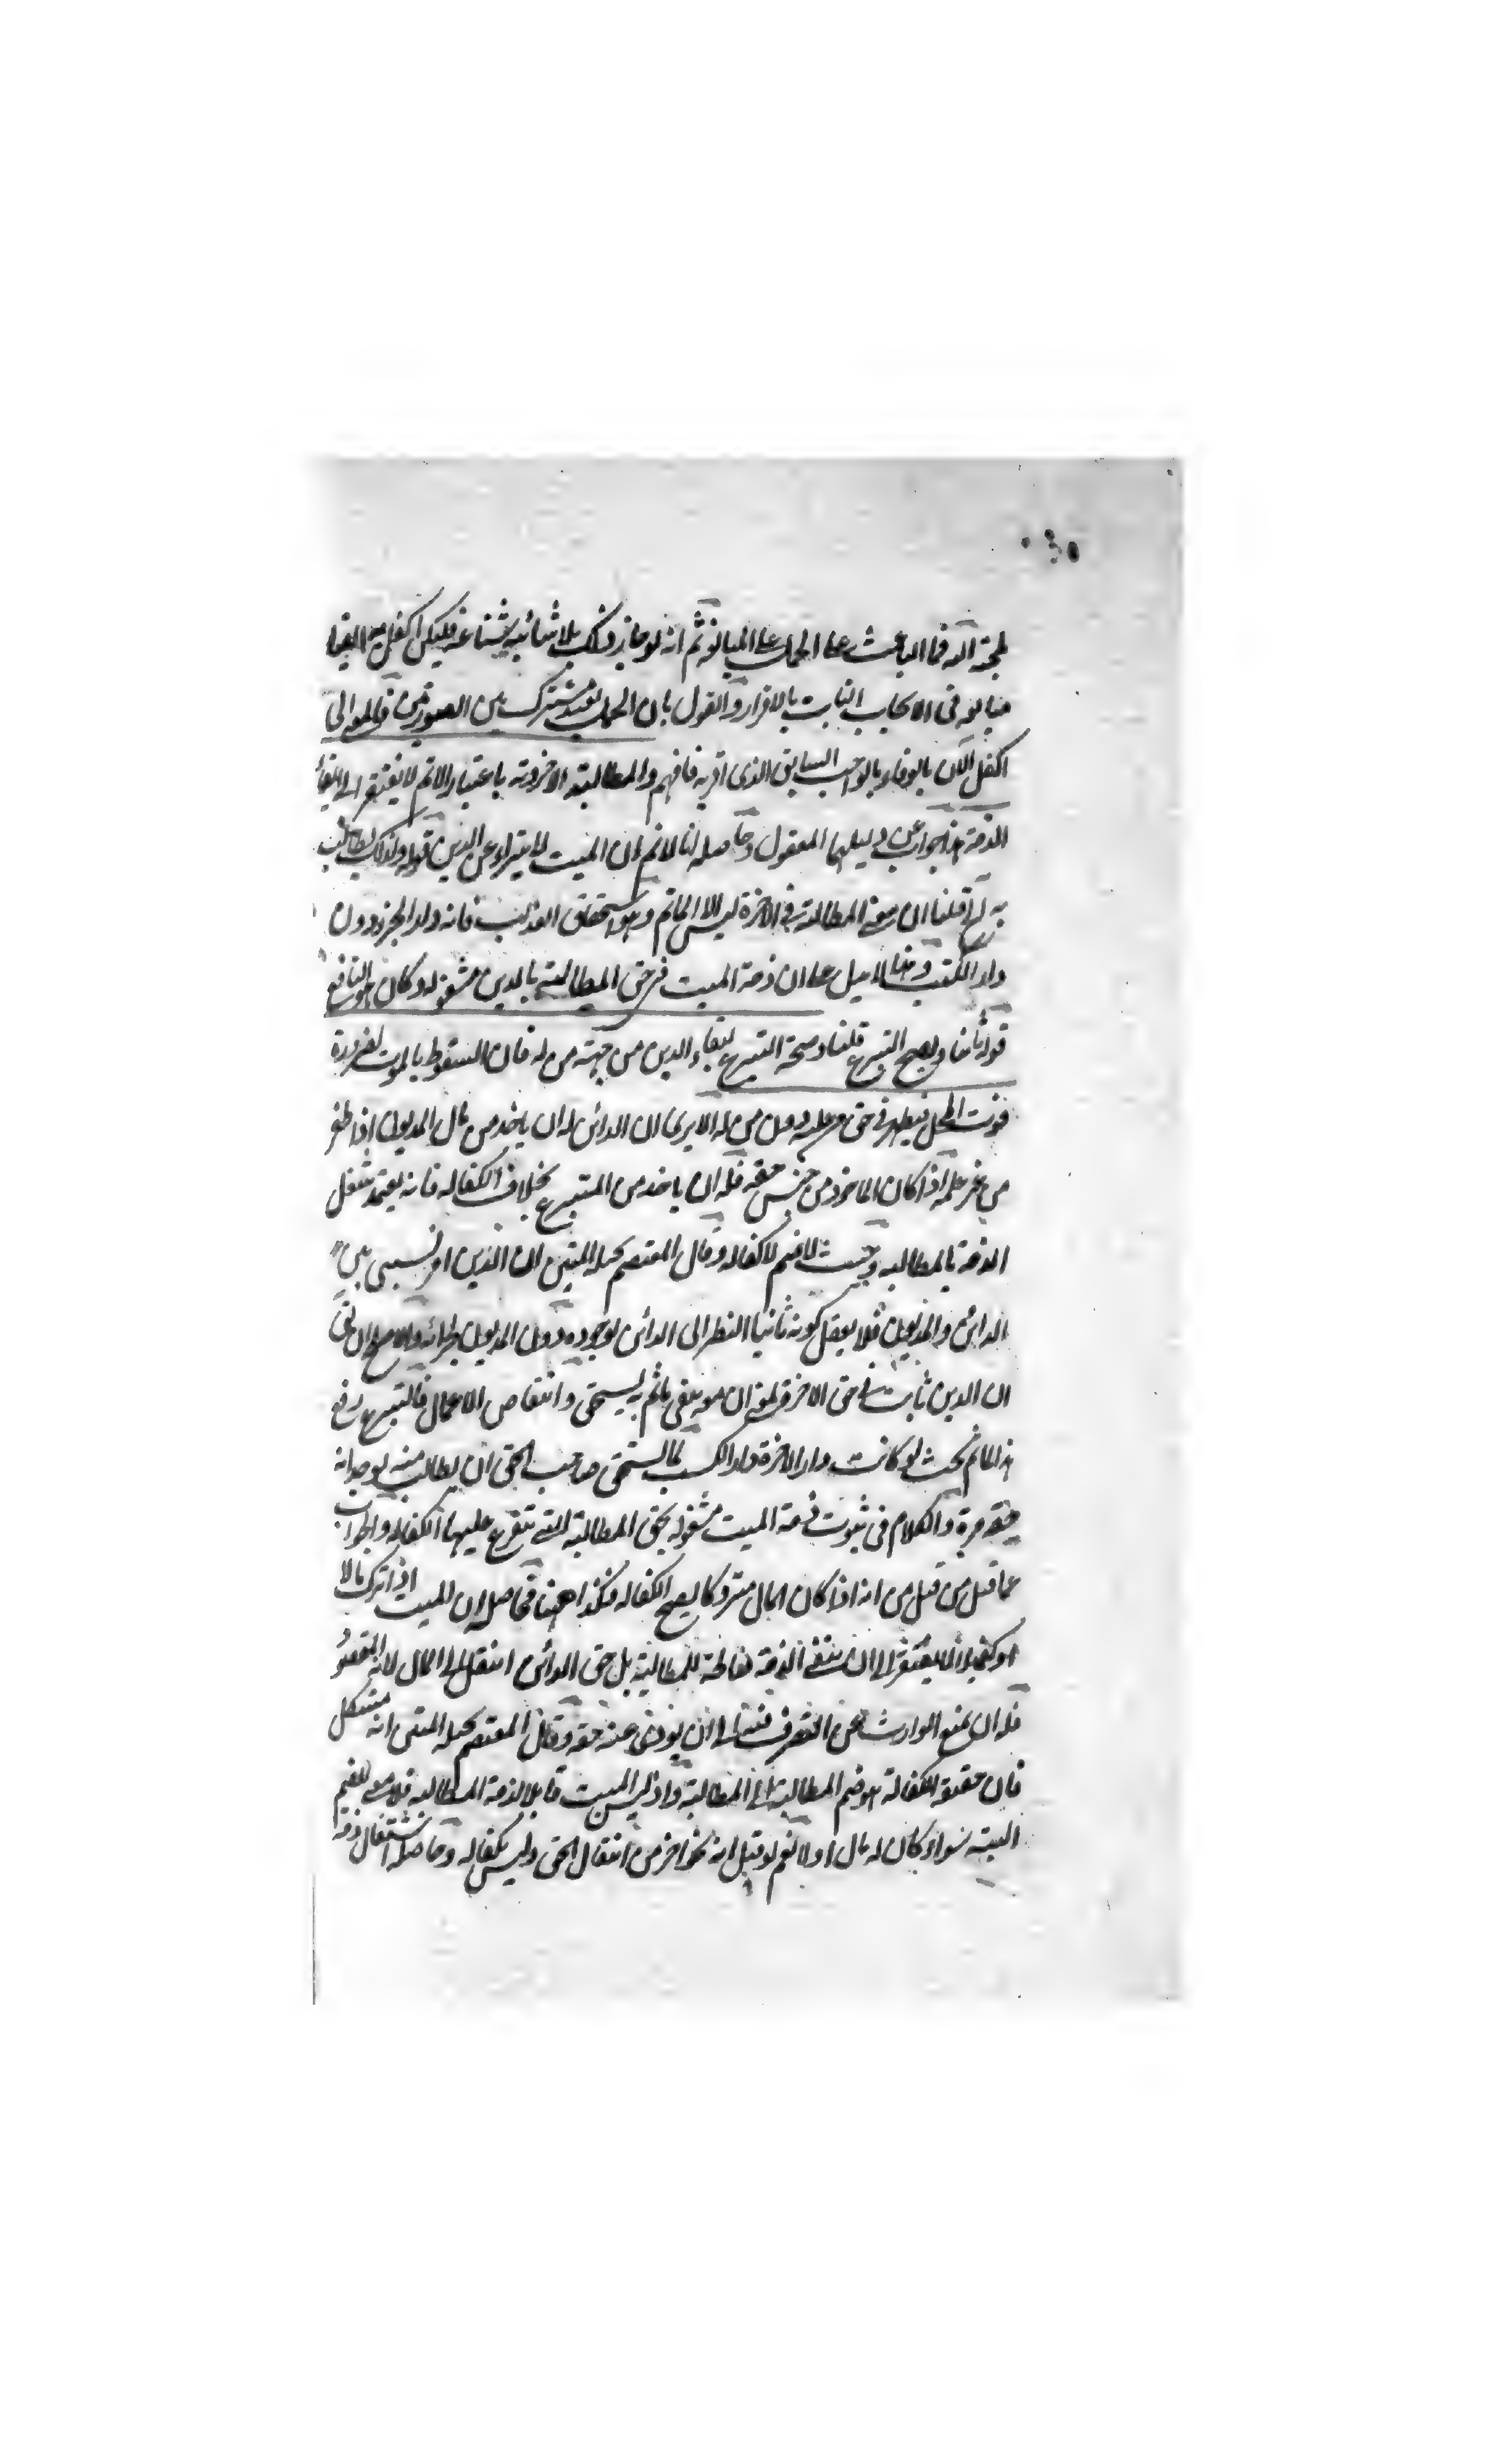 فما الباعث على الحمل على المبالغة ثم انه لو جاز ذلك بلا شائبة شناعة فليكن اكفل
في الايجاب الثابت بالاقرار والقول بان الحمل بعيد مشترك بين الصورتين
اكفل الآن بالوفاء بالواجب السابق الذى اقر به فافهم والمطالبة الاخروية باعتبار الاثم لا يفتقر الى بقاء
الذمة هذا جواب عن دليلهما المعقول وحاصله انا لا نم ان الميت لا يتبراء عن الدين قوله ولذلك يطالب
به الخ قلنا ان معنى المطالبة في الآخرة ليس الا الماثم وهو استحقاق العذاب فانه دار الجزاء دون
دار الكسب وهذا لا يدل على ان ذمة الميت في حق المطالبة بالدين مشغولة وكان هو النافع
قوله ثانيا ويصح التبرع قلنا وصحة التبرع لبقاء الدين من جهة من له فان السقوط بالموت لضرورة
فوت المحل فيظهر في حق من عليه دون من له الا يرى ان الدائن له ان ياخذ من مال المديون اذا ظفر
من غير علمه اذا كان الماخوذ من جنس حقه فله ان ياخذ من المتبرع بخلاف الكفالة فانه يعتمد شغل
الذمة بالمطالبة وحيث لا ضم لا كفالة وقال المعتصم بحبله المتين ان الدين امر نسبى بين
الدائن والمديون فلا يعقل كونه ثابتا بالنظر الى الدائن لوجوده دون المديون
ان الدين ثابت في حق الآخرة بمعنى ان من بقى ماثم به يستحق وانتقاص الاعمال فالتبرع رفع
هذا الماثم بحيث لو كانت دار الآخرة دار الكسب لما استحق صاحب الحق ان يطالب منه
حقه مرة والكلام فى ثبوت ذمة الميت مشغولة بحق المطالبة التى تتفرع عليها الكفالة والجواب
عما قيل من قبل من انه اذا كان المال متروكا يصح الكفالة فكذا ههنا فحاصله ان الميت اذا ترك مالا
او كفيلا انما يفتقر الى ان بل حق الدائن انتقل الى المال لانه المقصود
فله ان يمنع الوارث عن التصرف فيه الى ان يوفى عنه حقه وقال المعتصم بحبله المتين انه مشكل
فان حقيقة الكفالة هو ضم المطالبة الى المطالبة واذ ليس الميت قابلا لذمة المطالبة فلا معنى للضم
البتة سواء كان له مال اولا نعم لو قيل انه نحو اخر من انتقال الحق وليس بكفالة وحاصله اشتغال ذمة